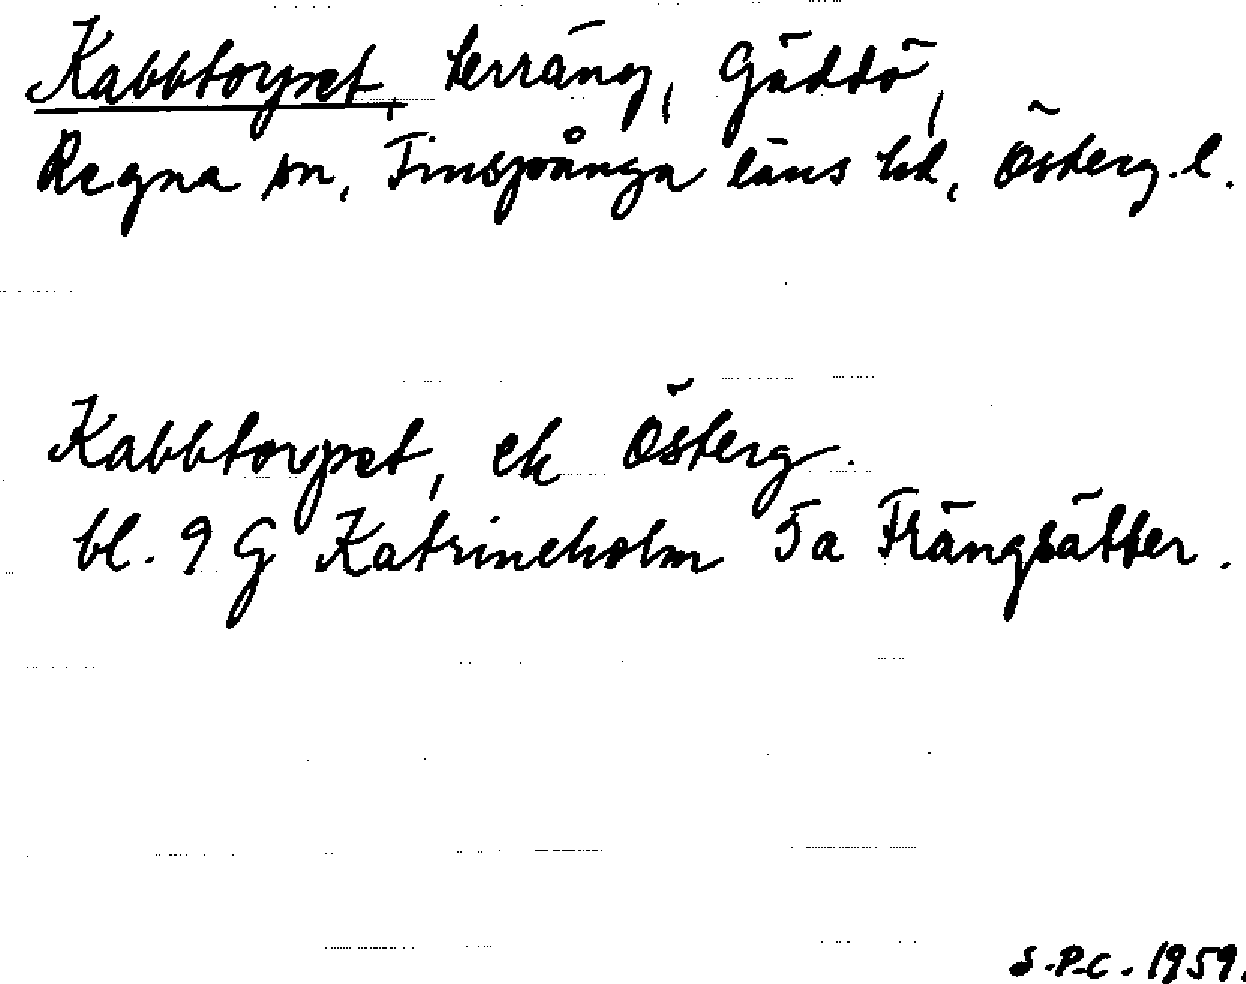 Kabbtorpet, terräng, Gäddö,
Regna sn, Finspånga läns hd, Österg. l.
Kabbtorpet, ek Österg.
bl. 9 G Katrineholm 5a Frängsätter.
S.P.C. 1959.